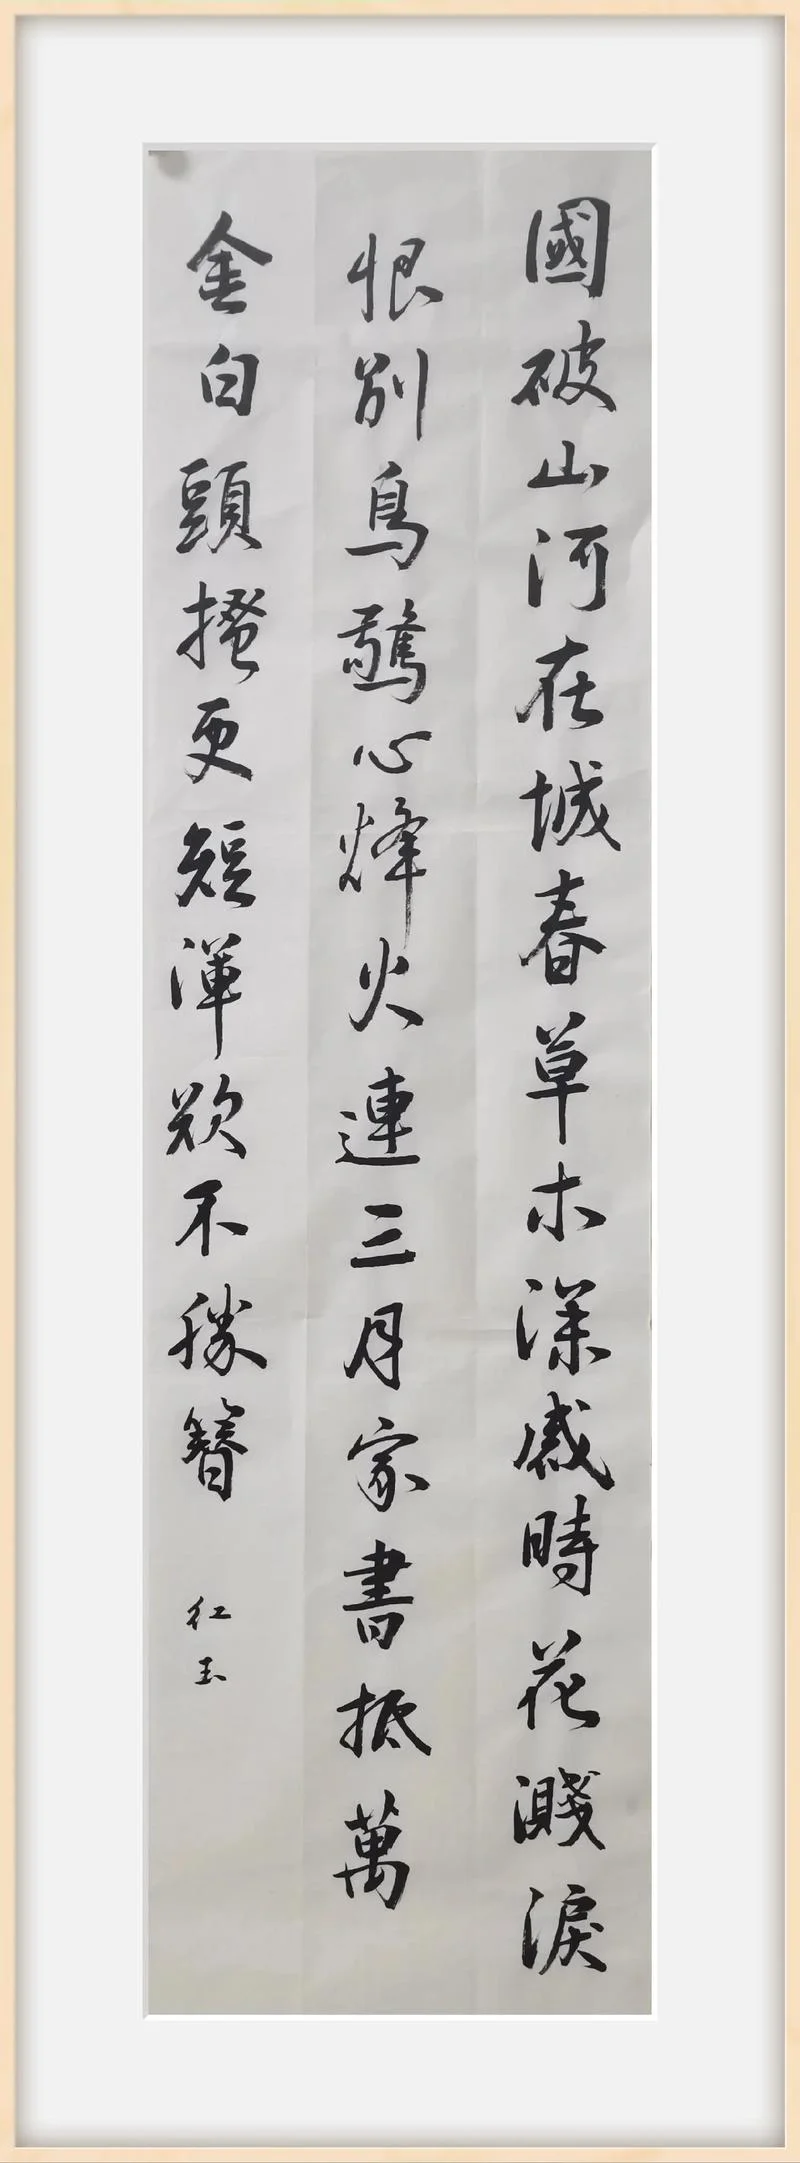 國破山河在城春草木深感時花濺淚
恨別鳥驚心烽火連三月家書抵萬
金白頭搔更短渾欲不勝簪
红玉